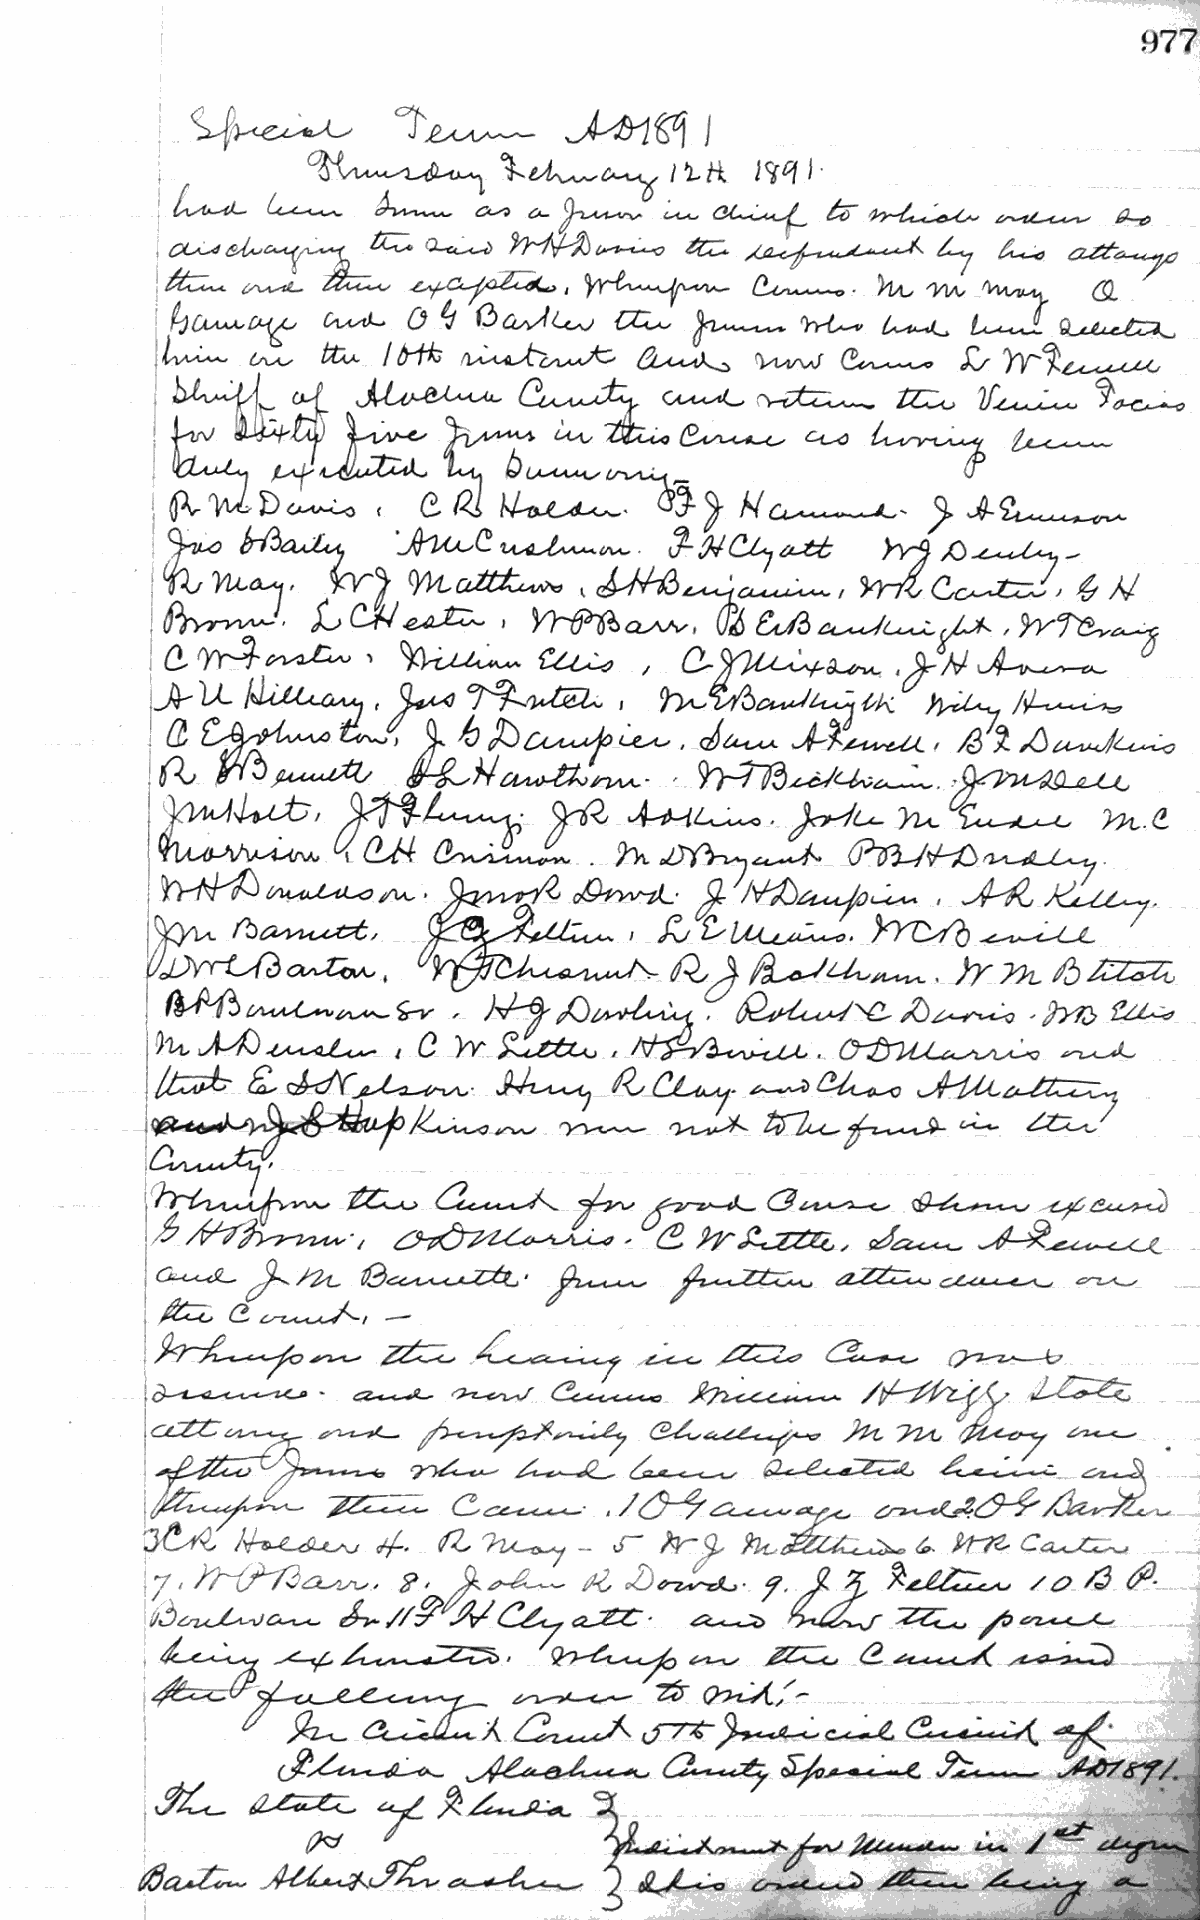 977
Special Term AD1891
Thursday February 12th 1891.
had been sworn as a juror in chief to which order so
discharging the said W H Davies the defendant by his attorneys
then and there excepted. Whereupon Comes. M M May O
Gamage and O G Barker the jurors who had been selected
herein on the 10th instant and now Comes L W Fennell
Sheriff of Alachua County and returns the Venire Facias
for Sixty five Jurors in this Cause as having been
duly executed by Summoning
R M Davis, C R Holder. P F J Hamond. J A Emerson
Jas Bailey A M Cushman. F H Clyatt W J Denley-
R May. W J Matthews, S H Benjamin, W R Carter, G H
Brown. L C Hester, W P Barr, E Bauknight, W T Craig
C W Forster, William Ellis, C J Mixson, J H Avera
A U Hilleary, Jas T Futch, M E Bauknight Wiley Hines
C E Johnston, J G Dampier. Sam A Fewell. B F Dawkins
R Bennett S L Hawthorn. W T Beckham. J M Dell
J M Holt, J T Fleming. J R Adkins. Jake M Endel M.C
Morrison, C H Crisman. M D Bryant P B H Dudley.
W H Donaldson. Jno R Dowd. J H Daupier, A R Kelley.
J M Barnett, J Z Feltner, L E Means. W C Bevill
D W L Barton, W T Chesnut R J Bakham. W M Blitch
B P Boulware Sr. H J Dowling. Robert C Davis. W B Ellis
M A Denslen, C W Settle, H S Bevill. O D Morris and
that E S Nelson. Henry R Clay and Chas A Matheny
and J S Hopkinson were not to be found in the
County.
Whereupon the Court for good Cause shown excused
G H Brown, O D Morris. C W Settle, Sam A Fewell
and J M Barnette. from further attendance on
the Court. -
Whereupon the hearing in this Case was
resumed. and now Comes William H Wigg State
attorney and peremptorily Challenges M M May one
of the Jurors who had been selected herein and
thereupon then Came. 1 O Gamage and 2 O G Barker
3 C R Holder 4. R May - 5 W J Matthews 6. W R Carter
7. W P Barr. 8. John R Dowd. 9. J Z Feltner 10 B P.
Boulware Sr 11 F H Clyatt. and now the panel
being exhausted. Whereupon the Court issued
the following order to wit:-
In Circuit Court 5th Judicial Circuit of
Florida Alachua County Special Term AD1891.
The State of Florida
vs
Indictment for Murder in 1st degree
Barton Albert Thrasher } It is ordered there being a